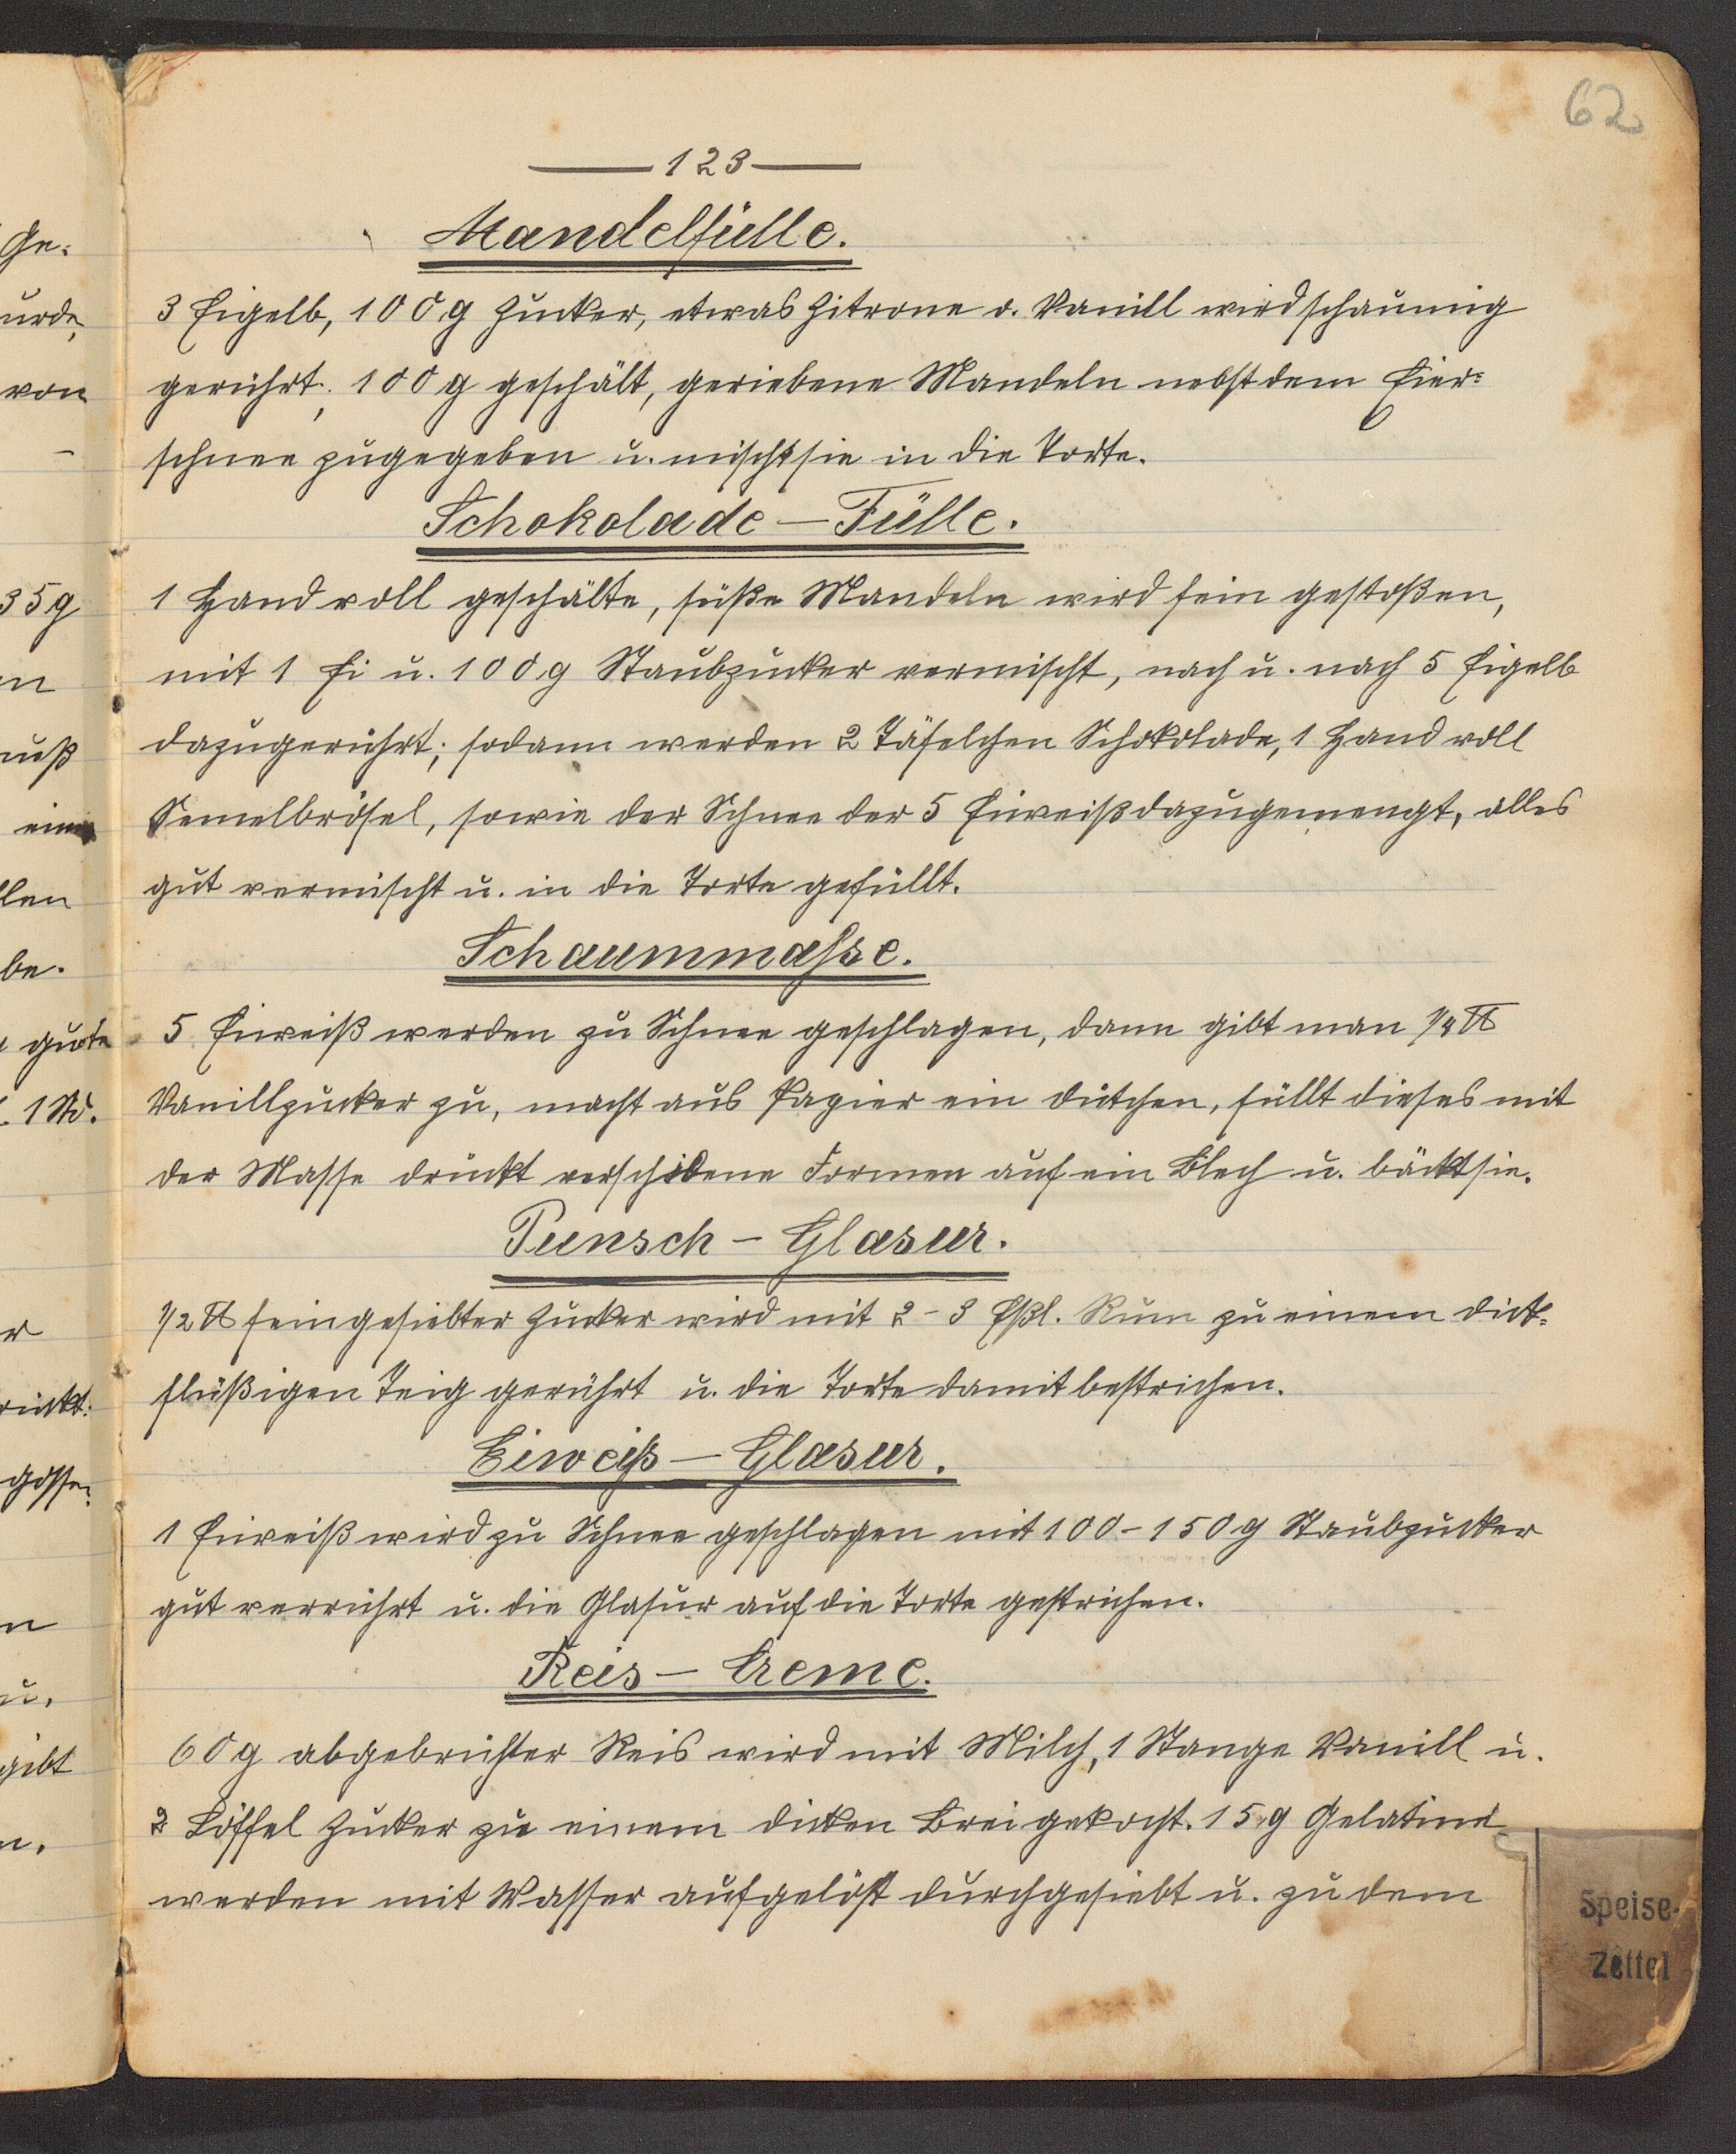 62
— 123 —
Mandelfülle.
3 Eigelb, 100 g Zucker, etwas Zitrone o. Vanill wird schaumig
gerührt; 100 g geschält, geriebene Mandeln nebst dem Eier-
schnee zugegeben u. mischt sie in die Torte.
Schokolade-Fülle.
1 Hand voll geschälte, süße Mandeln wird fein gestoßen,
mit 1 Ei u. 100 g Staubzucker vermischt, nach u. nach 5 Eigelb
dazugerührt; sodann werden 2 Täfelchen Schokolade, 1 Hand voll
Semelbrösel, sowie der Schnee der 5 Eiweiß dazugemengt, alles
gut vermischt u. in die Torte gefüllt.
Schaummasse.
5 Eiweiß werden zu Schnee geschlagen, dann gibt man 1/4 ℔
Vanillzucker zu, macht aus Papier ein Dütchen, füllt dieses mit
der Masse drückt verschidene Formen auf ein Blech u. bäckt sie.
Punsch-Glasur.
1/2 ℔ fein gesiebter Zucker wird mit 2-3 Eßl. Rum zu einem dick-
flüßigen Teig gerührt u. die Torte damit bestrichen.
Eiweiß-Glasur.
1 Eiweiß wird zu Schnee geschlagen mit 100-150 g Staubzucker
gut verrührt u. die Glasur auf die Torte gestrichen.
Reis-Creme.
60 g abgebrühter Reis wird mit Milch, 1 Stange Vanill u.
2 Löffel Zucker zu einem dicken Brei gekocht. 15 g Gelatine
werden mit Wasser aufgelöst durchgesiebt u. zu dem
Speise-
Zettel